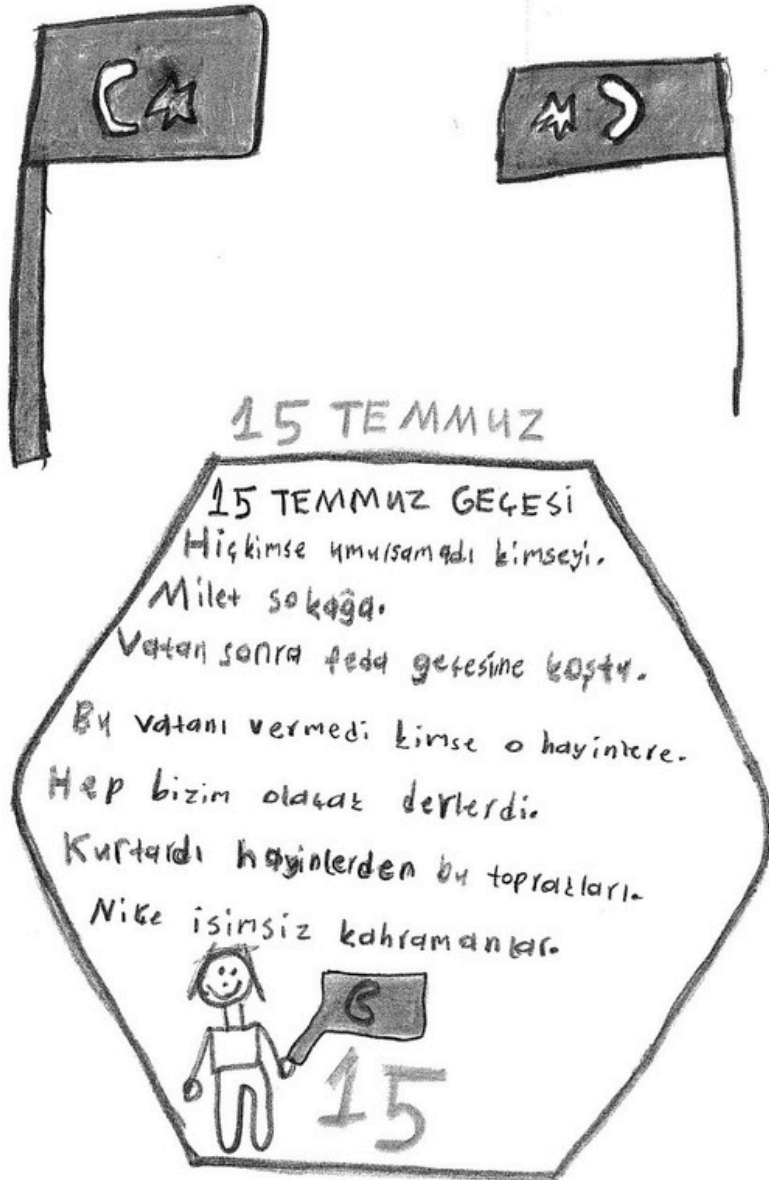 15 TEMMUZ
15 TEMMUZ GEÇESİ
Hiçkimse umursamadı kimseyi.
Milet sokağa.
Vatan sonra feda geçesine koştu.
Bu vatanı vermedi kimse o hayinlere.
Hep bizim olaçak derlerdi.
Kurtardı hayinlerden bu toprakları.
Niçe isimsiz kahramanlar.
15